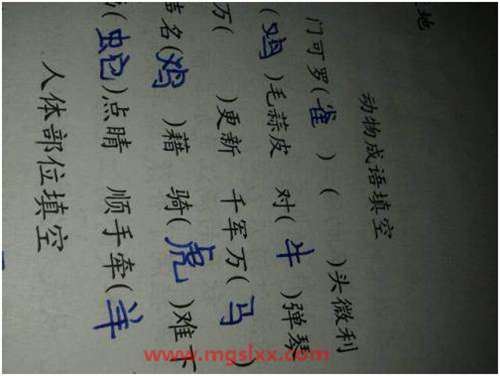 地
动物成语填空
门可罗(雀) ( )头微利
(鸡)毛蒜皮 对(牛)弹琴
万( )更新 千军万(马)
名(鸡)籍 骑(虎)难下
(蛇)点睛 顺手牵(羊)
人体部位填空
www.mgslxx.com